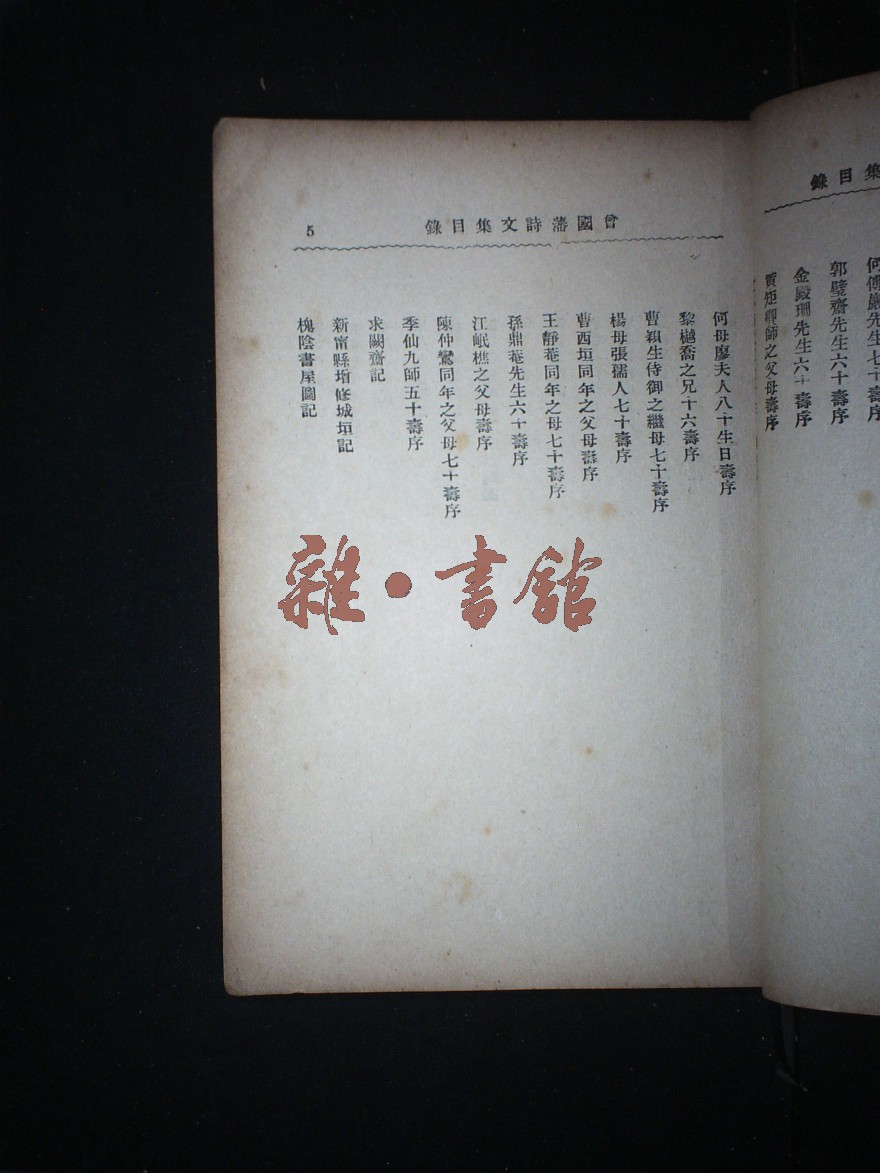 錄目集
何傅巖先生七十壽序
郭璧齋先生六十壽序
金殿珊先生六十壽序
黃矩卿師之父母壽序
曾國藩詩文集目錄
5
何母廖夫人八十生日壽序
黎樾喬之兄十六壽序
曹穎生侍御之繼母七十壽序
楊母張孺人七十壽序
曹西垣同年之父母壽序
王靜菴同年之母七十壽序
孫鼎菴先生六十壽序
江岷樵之父母壽序
陳仲鸞同年之父母七十壽序
季仙九師五十壽序
求闕齋記
新甯縣增修城垣記
槐陰書屋圖記
雜·書館